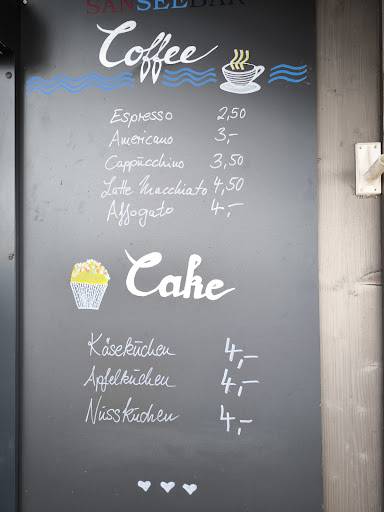 SANSEEBAR
Coffee
Espresso 2,50
Americano 3,-
Cappucchino 3,50
Latte Macchiato 4,50
Affogato 4,-
Cake
Käsekuchen 4,-
Apfelkuchen 4,-
Nusskuchen 4,-